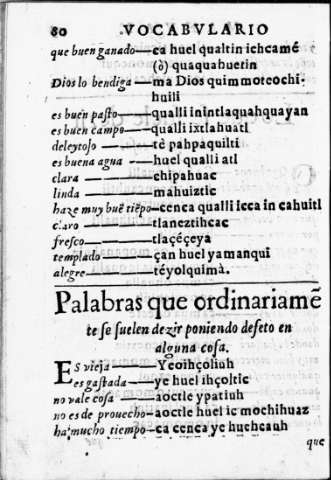 80 VOCABVLARIO
que buen ganado—ca huel qualtin ichcamé
(ò) quaquahuetin
Dios lo bendiga—ma Dios quimmoteochi-
huili
es buen pasto—qualli inintlaquahquayan
es buen campo—qualli ixtlahuatl
deleytoso—tè pahpaquilti
es buena agua—huel qualli atl
clara—chipahuac
linda—mahuiztic
haze muy buē tiēpo—cenca qualli icca in cahuitl
claro—tlaneztihcac
fresco—tlaçéçeya
templado—çan huel yamanqui
alegre—téyolquimà.
Palabras que ordinariamē
te se suelen dezir poniendo defeto en
alguna cosa.
ES vieja—Yeoihçoliuh
es gastada—ye huel ihçoltic
no vale cosa—aoctle ypatiuh
no es de prouecho—aoctle huel ic mochihuaz
ha mucho tiempo—ca cenca ye huehcauh
que